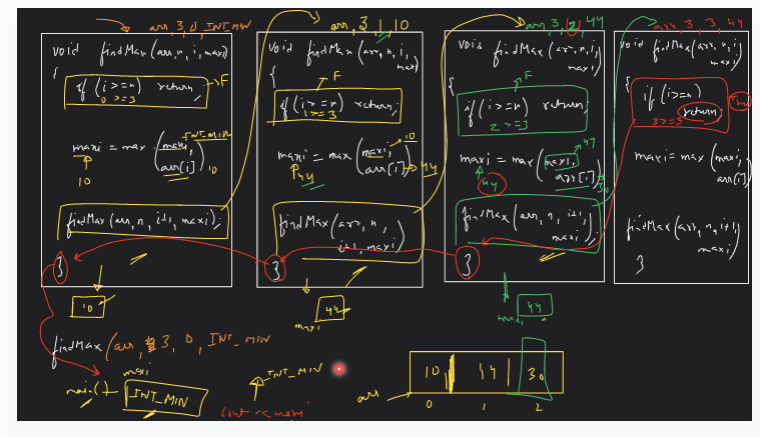 arr, 3, 0, INT_MIN
void findMax(arr, n, i, maxi)
{
if (i >= n) return; → F
0 >= 3
INT_MIN
maxi = max (maxi,
arr[i]) 10
10
findMax(arr, n, i+1, maxi);
}
10
arr, 3, 1, 10
void findMax(arr, n, i,
maxi)
{
F
if (i >= n) return;
1 >= 3
10
maxi = max (maxi,
arr[i]) → 44
44
findMax(arr, n,
i+1, maxi)
}
44
maxi
arr, 3, 2, 44
void findMax(arr, n, i,
maxi)
{
F
if (i >= n) return;
2 >= 3
maxi = max (maxi,
arr[i])
44
findMax(arr, n, i+1,
maxi);
}
44
maxi
arr, 3, 3, 44
void findMax(arr, n, i,
maxi)
{
if (i >= n)
return;
3 >= 3
True
maxi = max (maxi,
arr[i])
findMax(arr, n, i+1,
maxi)
}
findMax (arr, 3, 0, INT_MIN
maxi
main() INT_MIN
INT_MIN
cout << maxi
arr
10 44 30
0 1 2